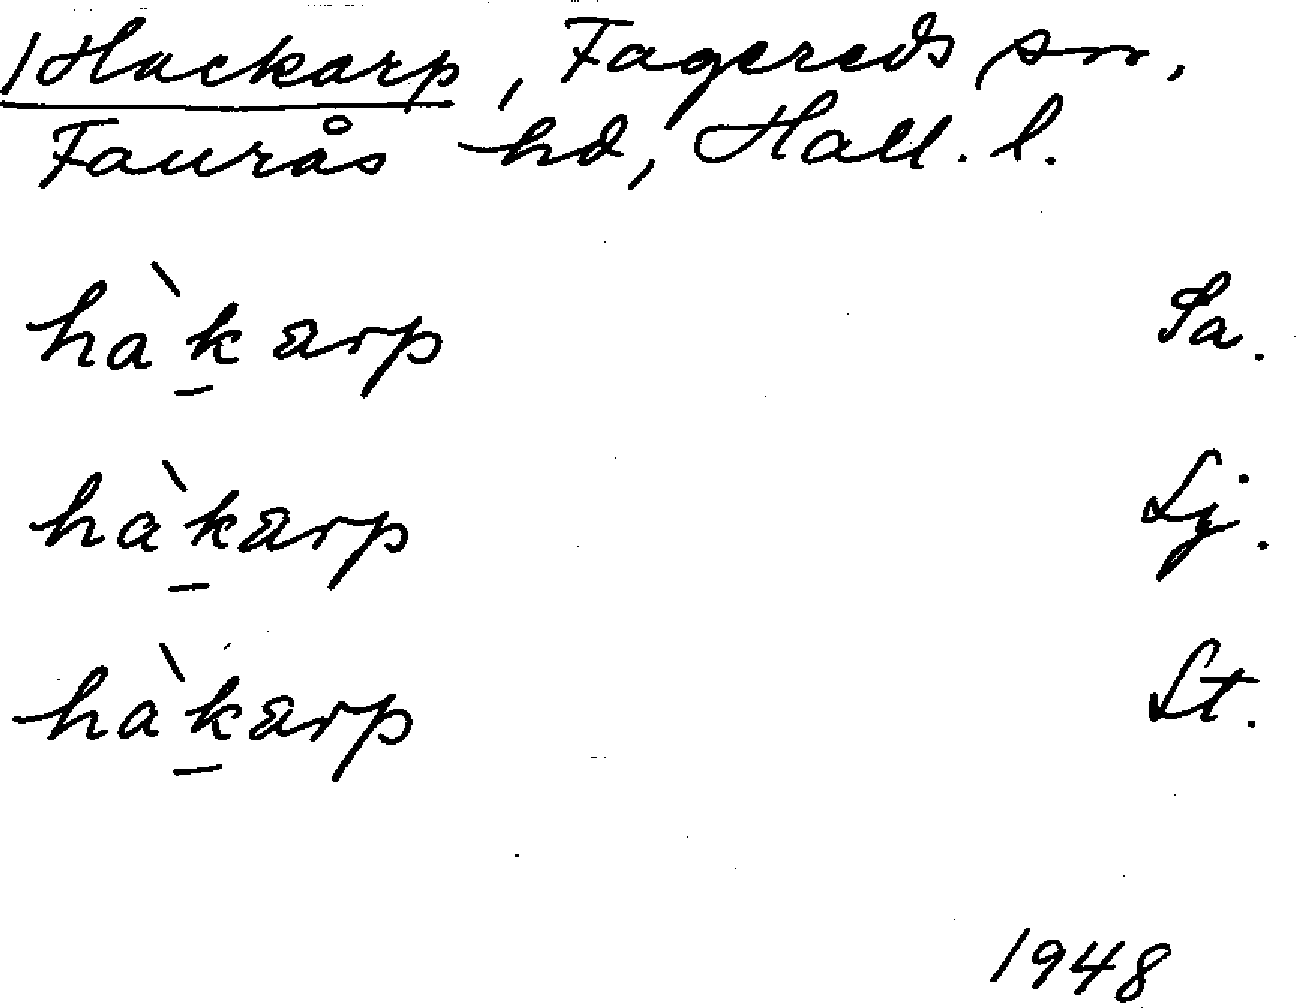 /Hackarp, Fagereds sn,
Faurås hd, Hall. l.
hàk̠arp Sa.
hàk̠arp Lj.
hàk̠arp St.
1948